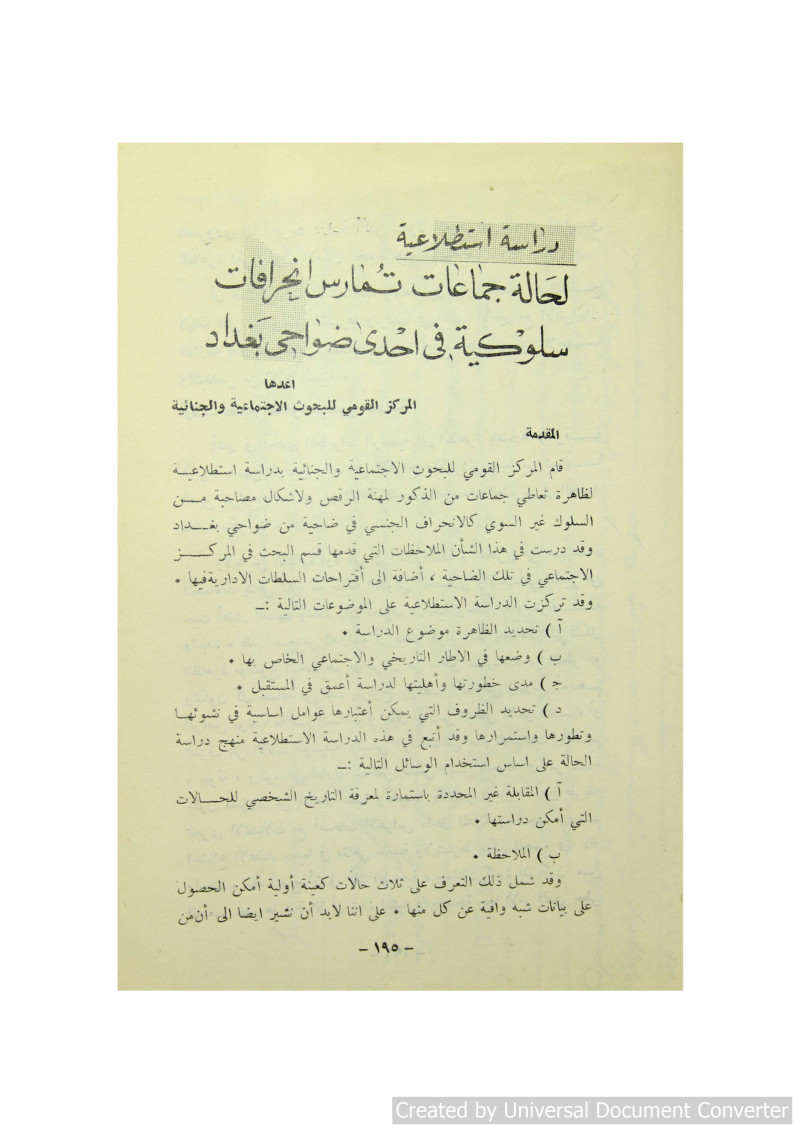 دراسة استطلاعية
لحَالة جمَاعات تُمَارس انجرافات
سلوكية في احْدى ضوَاحي بَغداد
اعدها
المركز القومي للبحوث الاجتماعية والجنائية
المقدمة
قام المركز القومي للبحوث الاجتماعية والجنائية بدراسة استطلاعيــة
لظاهرة تعاطي جماعات من الذكور لمهنة الرقص ولاشكال مصاحبة مــن
السلوك غير السوي كالانحراف الجنسي في ضاحية من ضواحي بغــداد
وقد درست في هذا الشأن الملاحظات التي قدمها قسم البحث في المركــز
الاجتماعي في تلك الضاحية ، أضافة الى أقتراحات السلطات الاداريةفيها •
وقد تركزت الدراسة الاستطلاعية على الموضوعات التالية :ـ
آ ) تحديد الظاهرة موضوع الدراسة •
ب ) وضعها في الاطار التاريخي والاجتماعي الخاص بها •
ج ) مدى خطورتها وأهليتها لدراسة أعمق في المستقبل •
د ) تحديد الظروف التي يمكن أعتبارها عوامل اساسية في نشوئهــا
وتطورها واستمرارها وقد أتبع في هذه الدراسة الاستطلاعية منهج دراسة
الحالة على اساس استخدام الوسائل التالية :ـ
آ ) المقابلة غير المحددة باستمارة لمعرفة التاريخ الشخصي للحــالات
التي أمكن دراستها •
ب ) الملاحظة •
وقد شمل ذلك التعرف على ثلاث حالات كعينة أولية أمكن الحصول
على بيانات شبه وافية عن كل منها • على اننا لابد أن نشير ايضا الى أن من
– ١٩٥ –
Created by Universal Document Converter